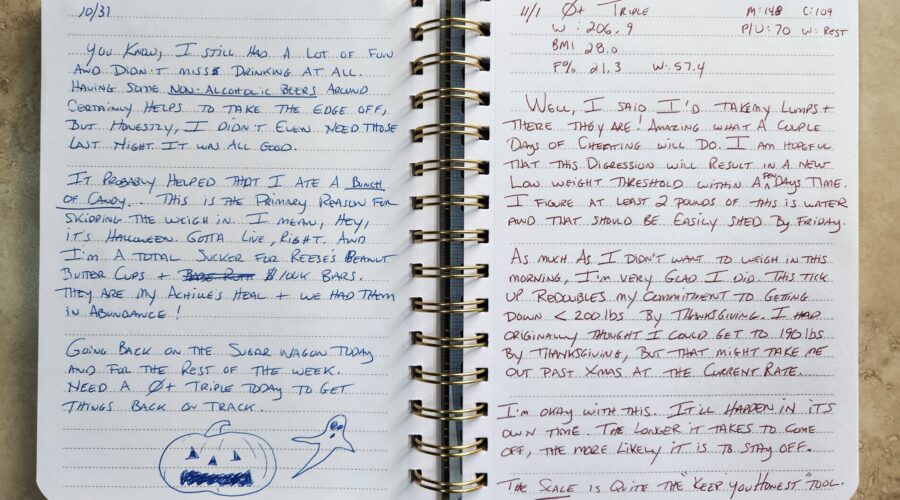 10/31
You Know, I still had a lot of fun
and didn't miss drinking at all.
Having some non-alcoholic beers around
certainly helps to take the edge off,
but honestly, I didn't even need those
last night. It was all good.
It probably helped that I ate a bunch
of candy... This is the primary reason for
skipping the weigh in. I mean, hey,
it's Halloween. Gotta live, right. And
I'm a total sucker for Reese's Peanut
Butter Cups + Babe Ruth $100K Bars.
They are my Achille's Heal + we had them
in abundance!
Going back on the sugar wagon today
and for the rest of the week.
Need a Ø+ Triple today to get
things back on track.
11/1 Ø+ Triple M: 148 C: 109
W: 206.9 P/U: 70 W: Rest
BMI 28.0
F% 21.3 W: 57.4
Well, I said I'd take my lumps +
there they are! Amazing what a couple
days of cheating will do. I am hopeful
that this digression will result in a new
low weight threshold within a few days time.
I figure at least 2 pounds of this is water
and that should be easily shed by Friday.
As much as I didn't want to weigh in this
morning, I'm very glad I did. This tick
up redoubles my commitment to getting
down < 200 lbs by Thanksgiving. I had
originally thought I could get to 196 lbs
by Thanksgiving, but that might take me
out past Xmas at the current rate.
I'm okay with this. It'll happen in it's
own time. The longer it takes to come
off, the more likely it is to stay off.
The scale is quite the "keep you honest" tool.